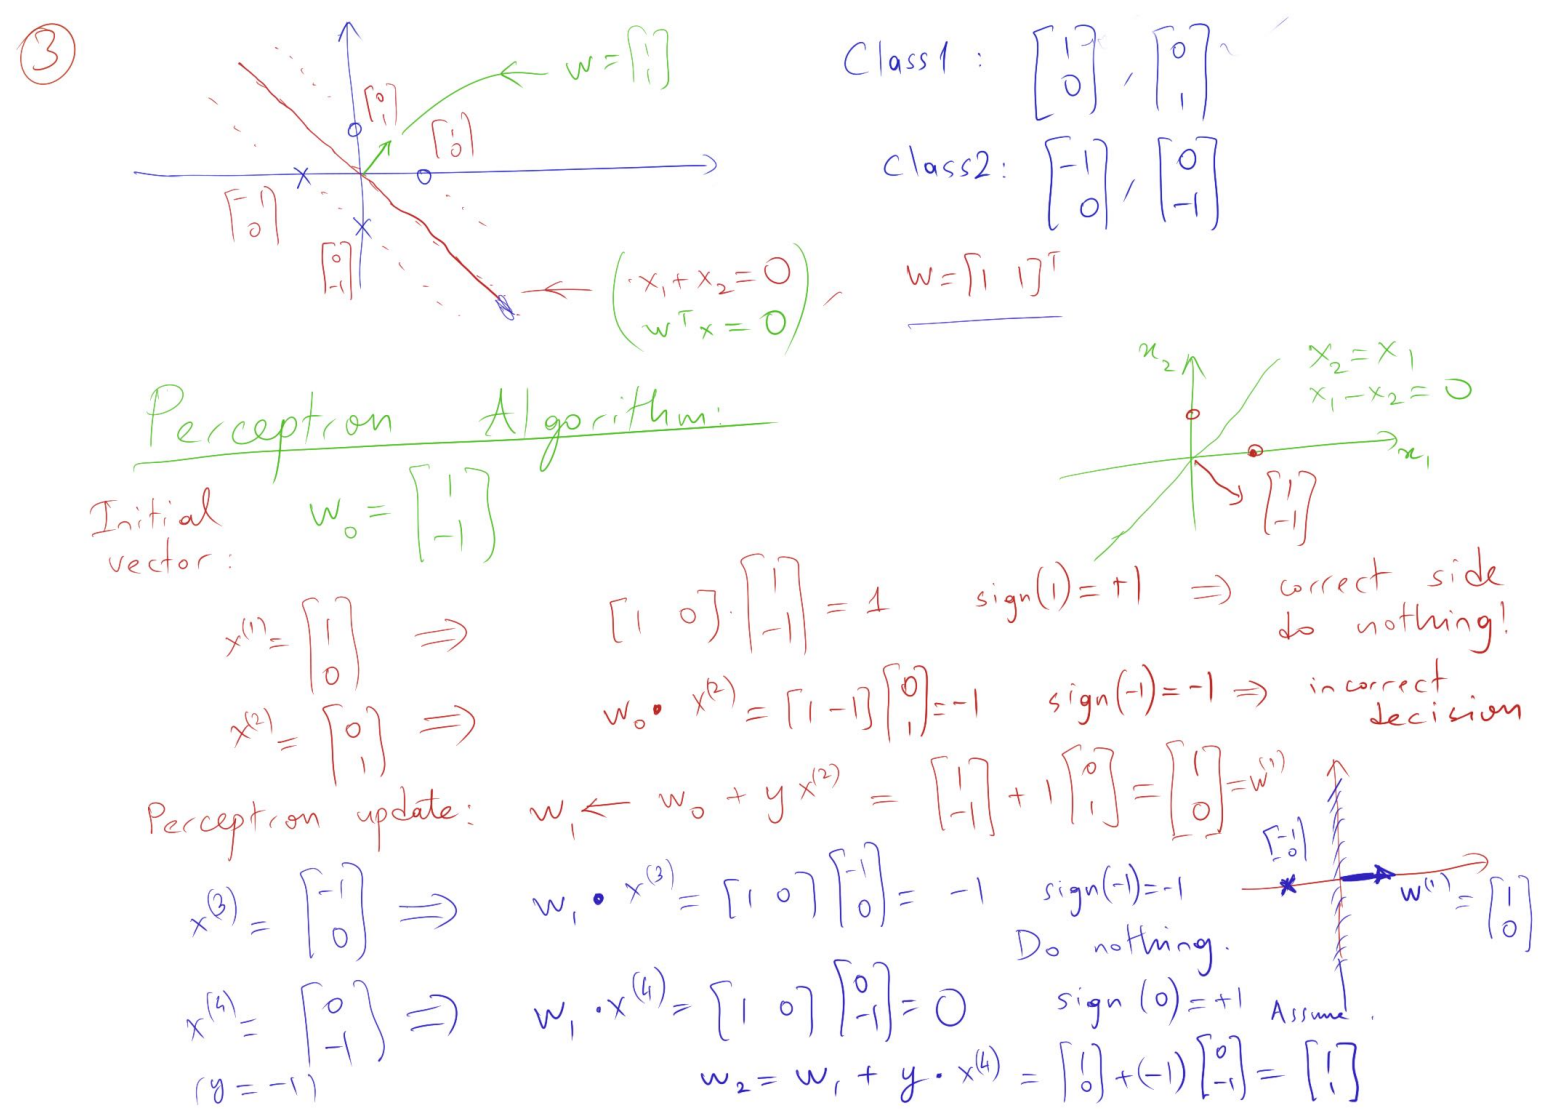 3
w = [1 1]
[0 1]
[1 0]
[-1 0]
[0 -1]
x₁ + x₂ = 0
wᵀx = 0
Class1 : [1 0] , [0 1]
Class2: [-1 0] , [0 -1]
w = [1 1]ᵀ
x₂
x₂ = x₁
x₁ - x₂ = 0
x₁
[1 -1]
Perceptron Algorithm:
Initial vector: w₀ = [1 -1]
x⁽¹⁾ = [1 0] ⇒ [1 0] . [1 -1] = 1 sign(1) = +1 ⇒ correct side
do nothing!
x⁽²⁾ = [0 1] ⇒ w₀ • x⁽²⁾ = [1 -1] [0 1] = -1 sign(-1) = -1 ⇒ incorrect
decision
Perceptron update: w₁ ← w₀ + y x⁽²⁾ = [1 -1] + 1 [0 1] = [1 0] = w⁽¹⁾
x⁽³⁾ = [-1 0] ⇒ w₁ • x⁽³⁾ = [1 0] [-1 0] = -1 sign(-1) = -1
Do nothing.
[-1 0]
w⁽¹⁾ = [1 0]
x⁽⁴⁾ = [0 -1] ⇒ w₁ . x⁽⁴⁾ = [1 0] [0 -1] = 0 sign (0) = +1 Assume.
(y = -1)
w₂ = w₁ + y • x⁽⁴⁾ = [1 0] + (-1) [0 -1] = [1 1]